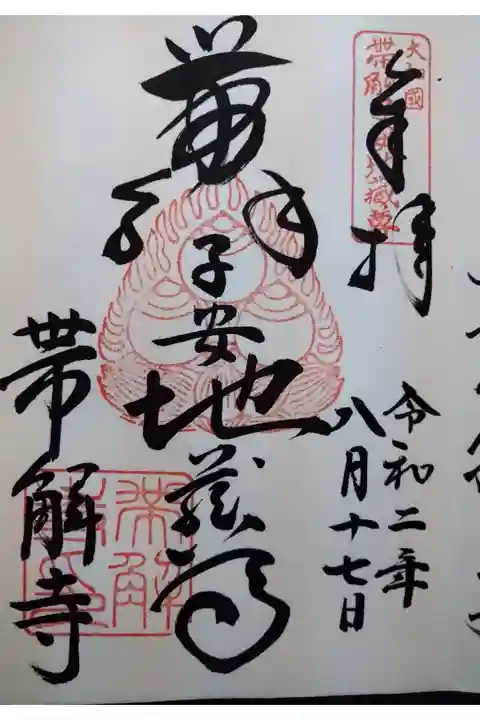 奉拝
令和二年
八月十七日
帯解
子安
地蔵尊
帯解寺
大和國
帯解子安地蔵尊
帯解